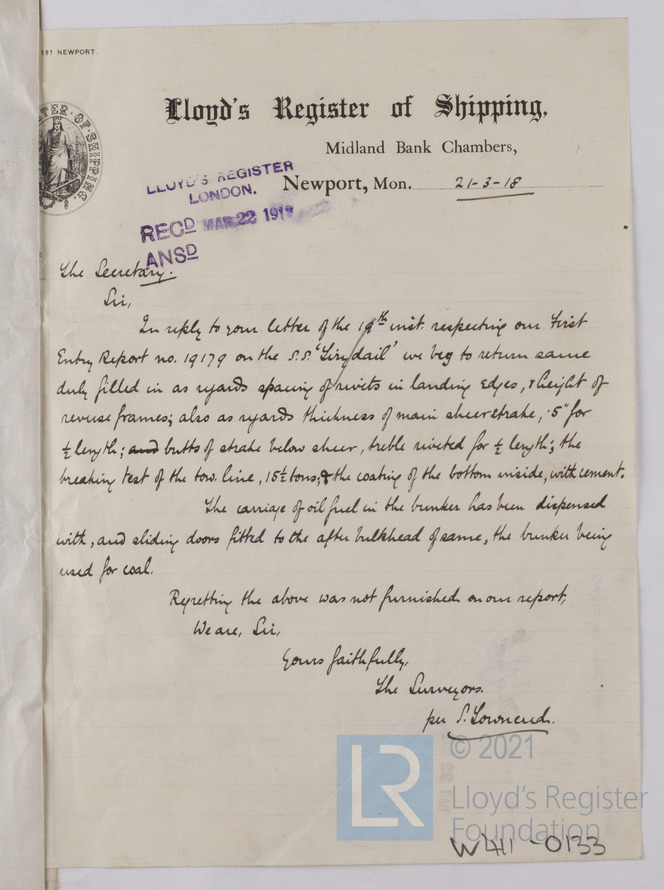 191 NEWPORT.
Lloyd's Register of Shipping,
Midland Bank Chambers,
Newport, Mon. 21-3-18
LLOYD'S REGISTER
LONDON.
RECD MAR 22 191
ANSD
The Secretary.
Sir,
In reply to your letter of the 19th inst. respecting our First
Entry Report no. 19179 on the S.S. we beg to return same
duly filled in as regards spacing of rivets in landing edges, & height of
reverse frames; also as regards thickness of main sheerstrake, .5" for
½ length; and butts of strake below sheer, treble riveted for ½ length; the
breaking test of the tow line, 15½ tons; & the coating of the bottom inside, with cement.
The carriage of oil fuel in the bunker has been dispensed
with, and sliding doors fitted to the after bulkhead of same, the bunker being
used for coal.
Regretting the above was not furnished on our report,
We are, Sir,
Yours faithfully,
The Surveyors.
per S. Townend.
LR
© 2021
Lloyd's Register
Foundation
W411-0133